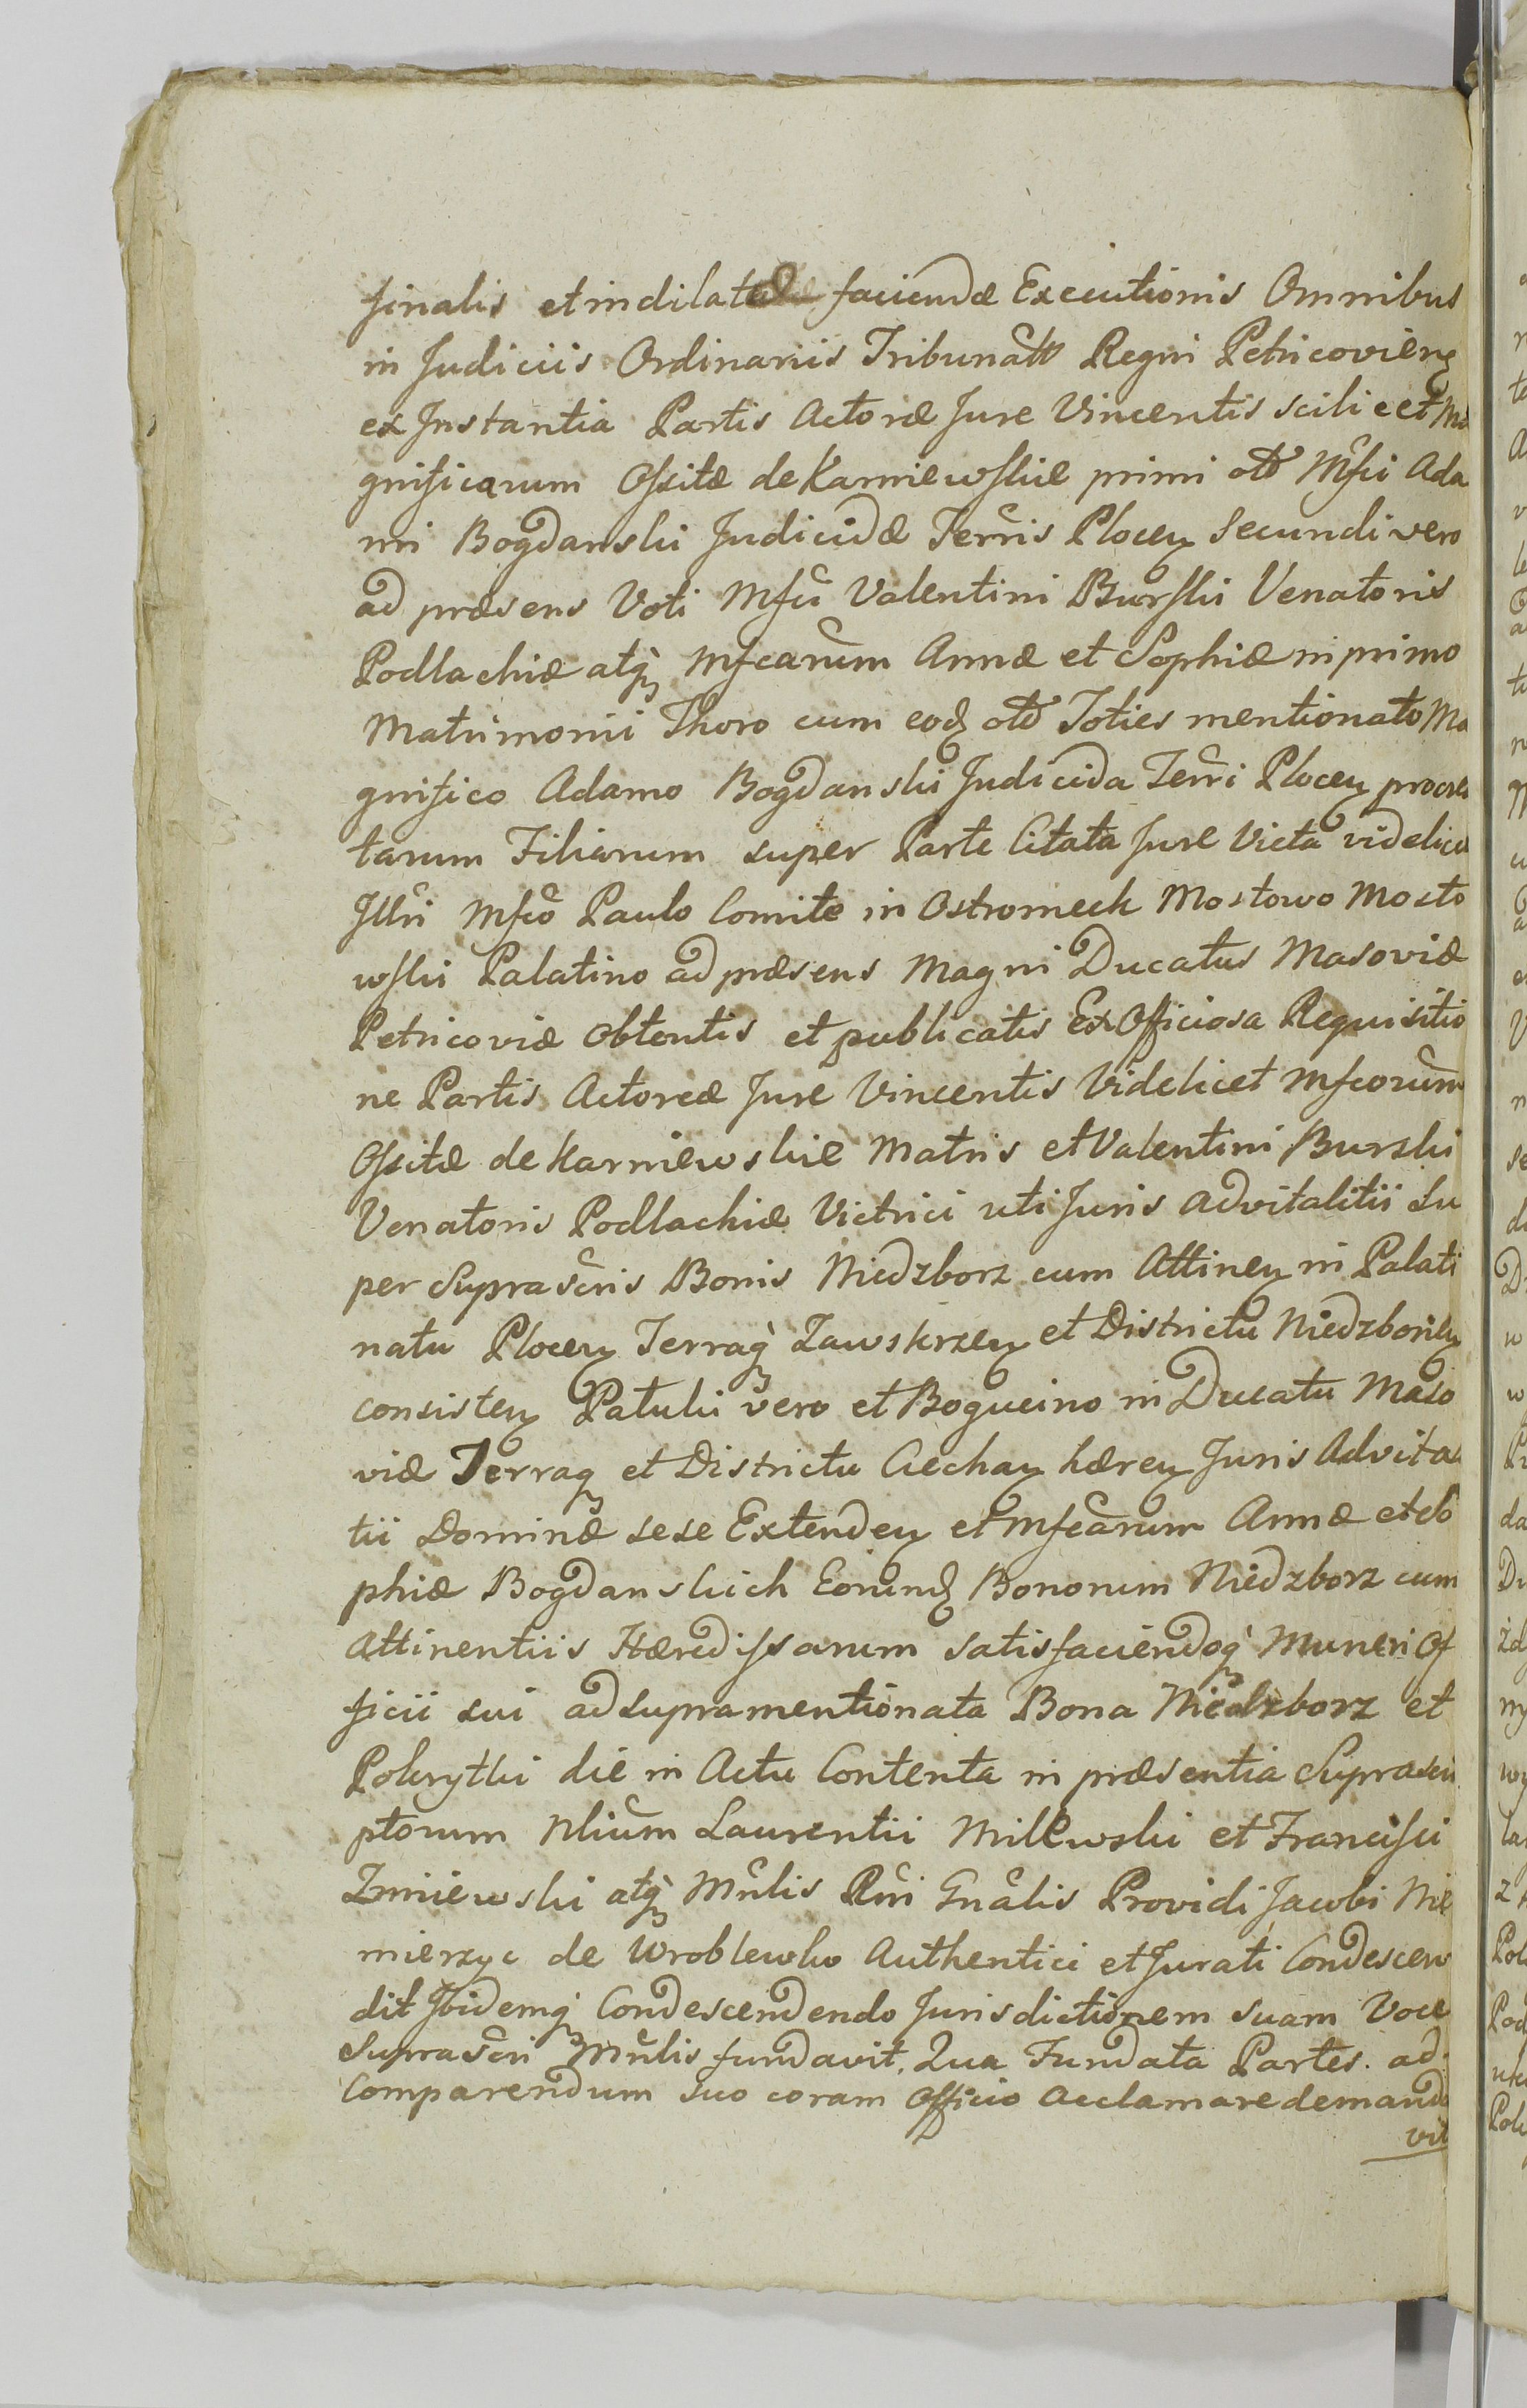 finalis et indilatæ faciendæ Executionis Omnibus
in Judiciis Ordinariis Tribunatt Regni Petricovieng
ex Instantia Partis Actoræ Jure Vincentis scilicet Ma
gnificarum Ossitæ de Karniewskie primi ott Mfci Ada
mi Bogdanski Judicidæ Terris Plocen Secundi vero
ad præsens Voti Mfci Valentini Burski Venatoris
Podlachiæ atq Mfcarum Annæ et Sophiæ in primo
Matrimonii Thoro cum eod ott Toties mentionato Ma
gnifico Adamo Bogdanski Judicida Terri Plocen procrea
tarum Filiarum super Parte Citata Jure Victa videlicet
Illri Mfco Paulo Comite in Ostromech Mostowo Mosto
wski Palatino ad præsens Magni Ducatus Masoviæ
Petricoviæ Obtentis et publicatis Ex Officiosa Requisitio
ne Partis Actoreæ Jure Vincentis Videlicet Mfcorum
Ossitæ de Karniewskie Matris et Valentini Burski
Venatoris Podlachiæ Victrici uti Juris Advitalitii Su
per Suprascris Bonis Niedzborz cum Attinen in Palati
natu Plocen Terraq Zawskrzen et Districtu Niedzborien
consisten Patuli vero et Bogucino in Ducatu Maso
viæ Terraq et Districtu Ciechan hæren Juris Advita
tii Dominæ sese Extenden et Mfcarum Annæ et So
phiæ Bogdanskich Eorund Bonorum Niedzborz cum
Attinentiis Hæredissarum satisfaciendoq Muneri Of
ficii sui ad supramentionata Bona Niedzborz et
Pokrytki die in Actu Contenta in præsentia Suprascri
ptorum Nlium Laurentii Millewski et Francisci
Zmiewski atq Mnlis Rni Gnalis Providi Jacobi Nie
mierzyc de Wroblewko Authentici et Jurati Condescen
dit Ibidemq Condescendendo Jurisdictionem suam Voce
Suprascri Mnlis fundavit. Qua Fundata Partes. ad
Comparendum suo coram Officio Acclamare demanda
vit